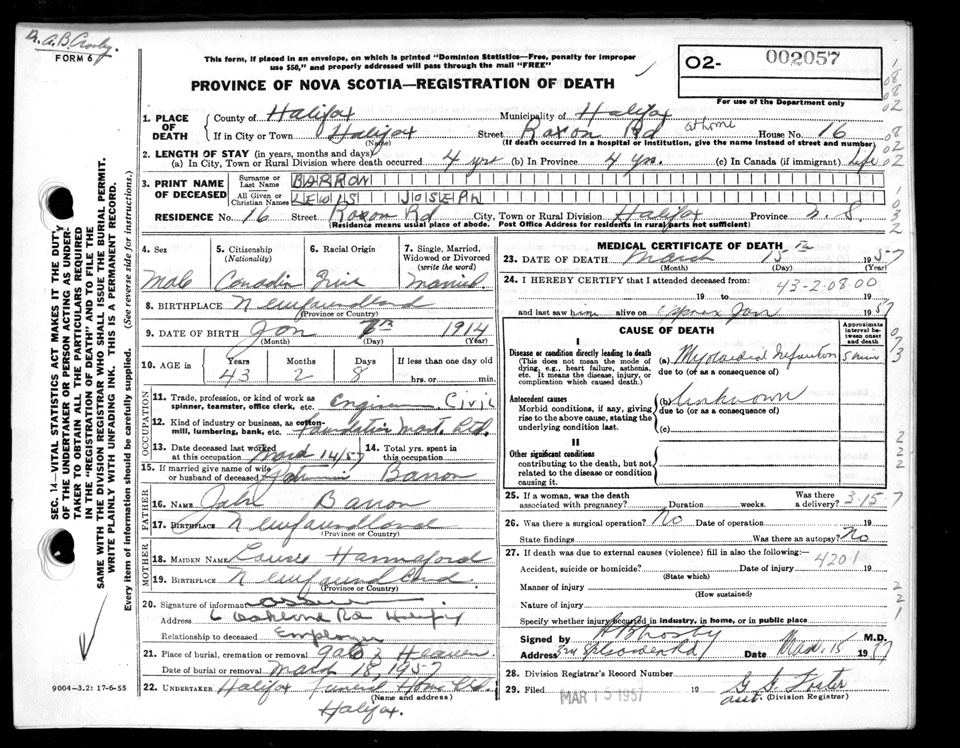 Dr. A.B. Crosby.
FORM 6
This form, if placed in an envelope, on which is printed "Dominion Statistics—Free, penalty for improper
use $50," and properly addressed will pass through the mail "FREE"
PROVINCE OF NOVA SCOTIA—REGISTRATION OF DEATH
O2- 002057
For use of the Department only
1. PLACE OF DEATH
County of Halifax Municipality of Halifax
If in City or Town Halifax Street Roxon Rd at home House No. 16
(Name) (If death occurred in a hospital or institution, give the name instead of street and number)
2. LENGTH OF STAY (in years, months and days)
(a) In City, Town or Rural Division where death occurred 4 yrs (b) In Province 4 yrs. (c) In Canada (if immigrant) Life
3. PRINT NAME OF DECEASED
Surname or Last Name BARRON
All Given or Christian Names LEWIS JOSEPH
RESIDENCE No. 16 Street Roxon Rd City, Town or Rural Division Halifax Province N.S.
(Residence means usual place of abode. Post Office Address for residents in rural parts not sufficient)
4. Sex Male
5. Citizenship (Nationality) Canadian
6. Racial Origin Irish
7. Single, Married, Widowed or Divorced (write the word) Married
8. BIRTHPLACE Newfoundland
(Province or Country)
9. DATE OF BIRTH Jan 7th 1914
(Month) (Day) (Year)
10. AGE in Years 43 Months 2 Days 8 If less than one day old
hrs. or min.
OCCUPATION
11. Trade, profession, or kind of work as spinner, teamster, office clerk, etc. Engineer Civil
12. Kind of industry or business, as cotton-mill, lumbering, bank, etc. Foundation Mart. Ltd.
13. Date deceased last worked at this occupation March 14/57
14. Total yrs. spent in this occupation
15. If married give name of wife or husband of deceased Barron
FATHER
16. Name John Barron
17. Birthplace Newfoundland
(Province or Country)
MOTHER
18. MAIDEN NAME Hannaford
19. BIRTHPLACE Newfoundland.
(Province or Country)
20. Signature of informant
Address 6 Oakland Rd Halifax
Relationship to deceased Employer
21. Place of burial, cremation or removal Gate of Heaven
Date of burial or removal March 18, 1957
22. UNDERTAKER Halifax Funeral Home Ltd.
(Name and address)
Halifax.
MEDICAL CERTIFICATE OF DEATH
23. DATE OF DEATH March 15th 1957
(Month) (Day) (Year)
24. I HEREBY CERTIFY that I attended deceased from:
43-2-08.00
19 to 19
and last saw him alive on Approx Jan 1957
CAUSE OF DEATH
Approximate interval between onset and death
I
Disease or condition directly leading to death
(This does not mean the mode of dying, e.g., heart failure, asthenia, etc. It means the disease, injury, or complication which caused death.)
(a) Myocardial Infarction 5 min
due to (or as a consequence of)
Antecedent causes
Morbid conditions, if any, giving rise to the above cause, stating the underlying condition last.
(b) Unknown
due to (or as a consequence of)
(c)
II
Other significant conditions
contributing to the death, but not related to the disease or condition causing it.
25. If a woman, was the death associated with pregnancy? Duration weeks. Was there a delivery?
3-15-7
26. Was there a surgical operation? No Date of operation 19
State findings Was there an autopsy? No
27. If death was due to external causes (violence) fill in also the following:—
Accident, suicide or homicide? Date of injury 19
4201
(State which)
Manner of injury
(How sustained)
Nature of injury
Specify whether injury occurred in industry, in home, or in public place
Signed by A B Crosby M.D.
Address Date Mar. 15 1957
28. Division Registrar's Record Number
29. Filed MAR 15 1957 19 G G Foster
asst. (Division Registrar)
SEC. 14—VITAL STATISTICS ACT MAKES IT THE DUTY
OF THE UNDERTAKER OR PERSON ACTING AS UNDER-
TAKER TO OBTAIN ALL THE PARTICULARS REQUIRED
IN THE "REGISTRATION OF DEATH" AND TO FILE THE
SAME WITH THE DIVISION REGISTRAR WHO SHALL ISSUE THE BURIAL PERMIT.
WRITE PLAINLY WITH UNFADING INK. THIS IS A PERMANENT RECORD.
Every item of information should be carefully supplied. (See reverse side for instructions.)
9004-3.2: 17-6-55